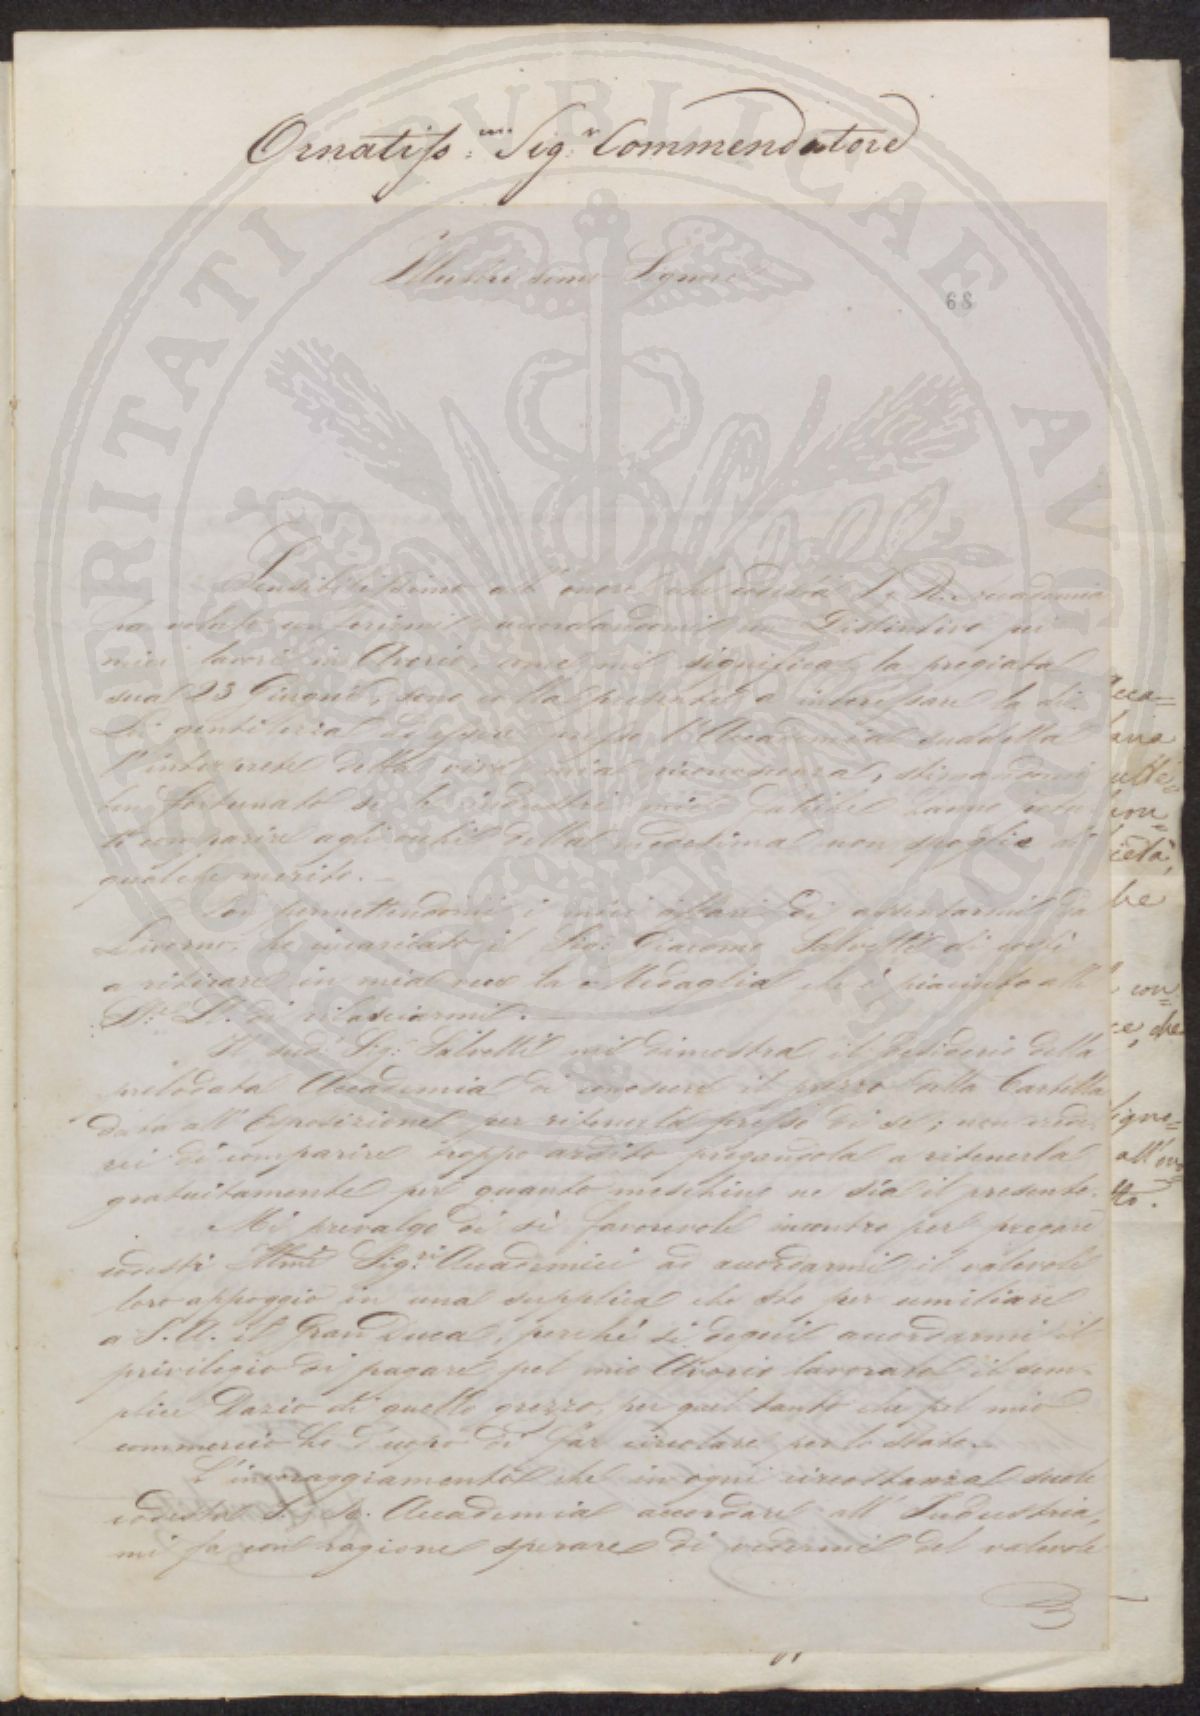 Ornatiss:mo Sig:r Commendatore
Illustrissimo Signore
68
Sensibilissimo all' onore che codesta I. R. Accademia
ha voluto conferirmi accordandomi un Distintivo pei
miei lavori in Avorio, come mi significa la pregiata
sua 23 Giugno, sono colla presente a interessare la di
Lei gentilezza di essere presso l'Accademia suddetta
l'interprete della viva mia riconoscenza, stimandomi
ben fortunato se le industri mie fatiche hanno potu
to comparire agli occhi della medesima non spoglie di
qualche merito. —
Non permettendomi i miei affari di assentarmi da
Livorno, ho incaricato il Sig: Giacomo Salvetti di costì
a ritirare in mia vece la Medaglia che è piaciuto alle
di rilasciarmi. —
Il sud.o Sig: Salvetti mi dimostra il desiderio della
prelodata Accademia di conoscere il prezzo della
data all' Esposizione per ritenerla presso di se; non
di comparire troppo ardito pregandola a ritenerla
gratuitamente per quanto meschino ne sia il presente.
Mi prevalgo di sì favorevole incontro per pregare
codesti Illmi Sig:ri Accademici ad accordarmi il valevole
loro appoggio in una supplica che sto per umiliare
a S. A. il Gran Duca, perché si degni accordarmi il
privilegio di pagare pel mio Avorio lavorato il sem-
plice Dazio di quello grezzo, per quel tanto che pel mio
commercio ho d'uopo di far circolare per lo stato. —
L'incoraggiamento che in ogni circostanza suole
codesta I. e R. Accademia accordare all' Industria,
mi fa con ragione sperare di vedermi del valevole